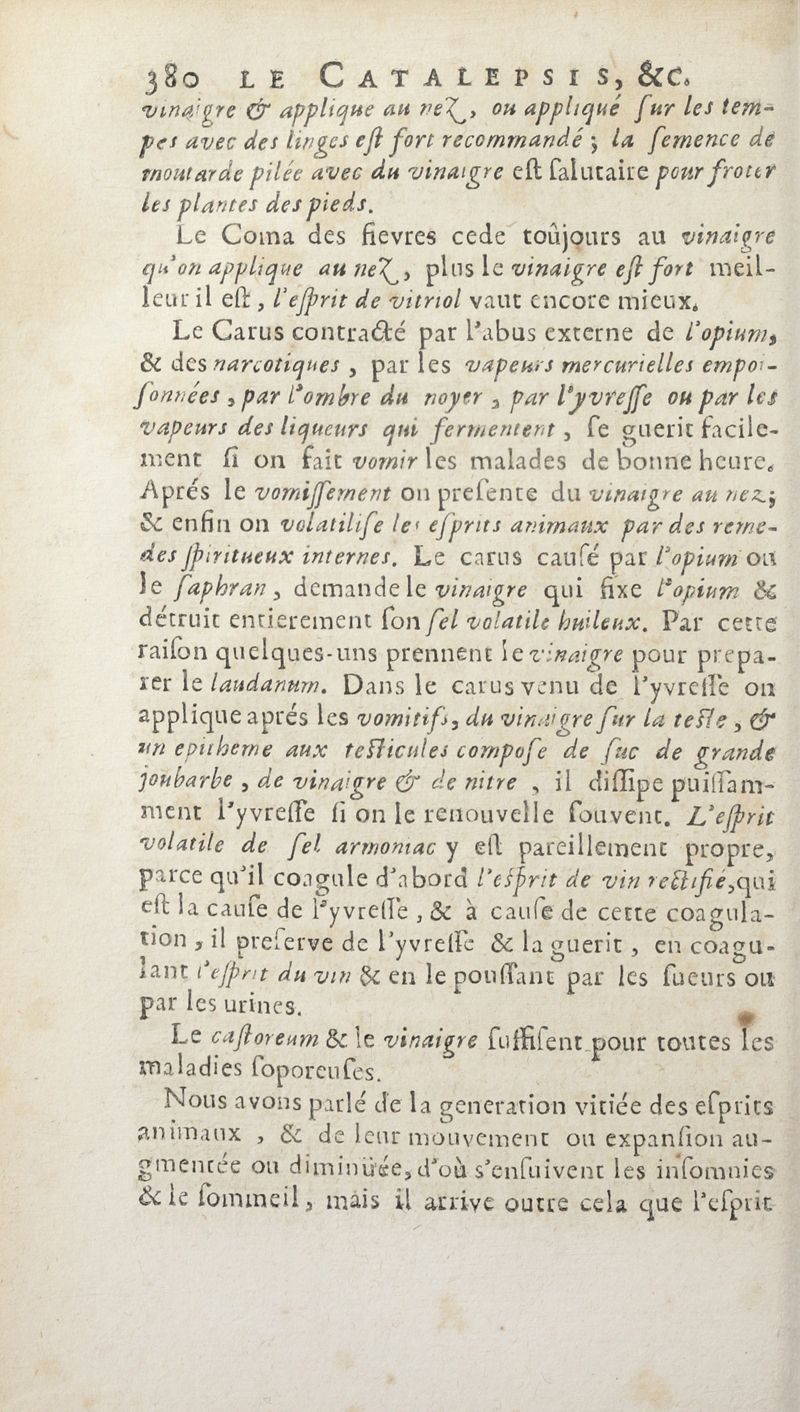 380 LE CATALEPSIS, &c.
vinaigre & applique au neZ, ou appliqué ſur les tem-
pes avec des linges eſt fort recommandé ; la ſemence de
moutarde pilée avec du vinaigre eſt ſalutaire pour froter
les plantes des pieds.
Le Coma des fievres cede toûjours au vinaigre
qu'on applique au neZ, plus le vinaigre eſt fort meil-
leur il eſt, l'eſprit de vitriol vaut encore mieux.
Le Carus contracté par l'abus externe de l'opium,
& des narcotiques, par les vapeurs mercurielles empoi-
ſonnées, par l'ombre du noyer, par l'yvreſſe ou par les
vapeurs des liqueurs qui fermentent, ſe guerit facile-
ment ſi on fait vomir les malades de bonne heure.
Aprés le vomiſſement on preſente du vinaigre au nez;
& enfin on volatiliſe les eſprits animaux par des reme-
des ſpiritueux internes. Le carus cauſé par l'opium ou
le ſaphran, demande le vinaigre qui fixe l'opium &
détruit entierement ſon ſel volatile huileux. Par cette
raiſon quelques-uns prennent le vinaigre pour prepa-
rer le laudanum. Dans le carus venu de l'yvreſſe on
applique aprés les vomitifs, du vinaigre ſur la teſte, &
un epitheme aux teſticules compoſe de ſuc de grande
joubarbe, de vinaigre & de nitre, il diſſipe puiſſam-
ment l'yvreſſe ſi on le renouvelle ſouvent. L'eſprit
volatile de ſel armoniac y eſt pareillement propre,
parce qu'il coagule d'abord l'eſprit de vin rectifié,qui
eſt la cauſe de l'yvreſſe, & à cauſe de cette coagula-
tion, il preſerve de l'yvreſſe & la guerit, en coagu-
lant l'eſprit du vin & en le pouſſant par les ſueurs ou
par les urines.
Le caſtoreum & le vinaigre ſuffiſent pour toutes les
maladies ſoporeuſes.
Nous avons parlé de la generation vitiée des eſprits
animaux, & de leur mouvement ou expanſion au-
gmentée ou diminüée, d'où s'enſuivent les inſomnies
& le ſommeil, mais il arrive outre cela que l'eſprit